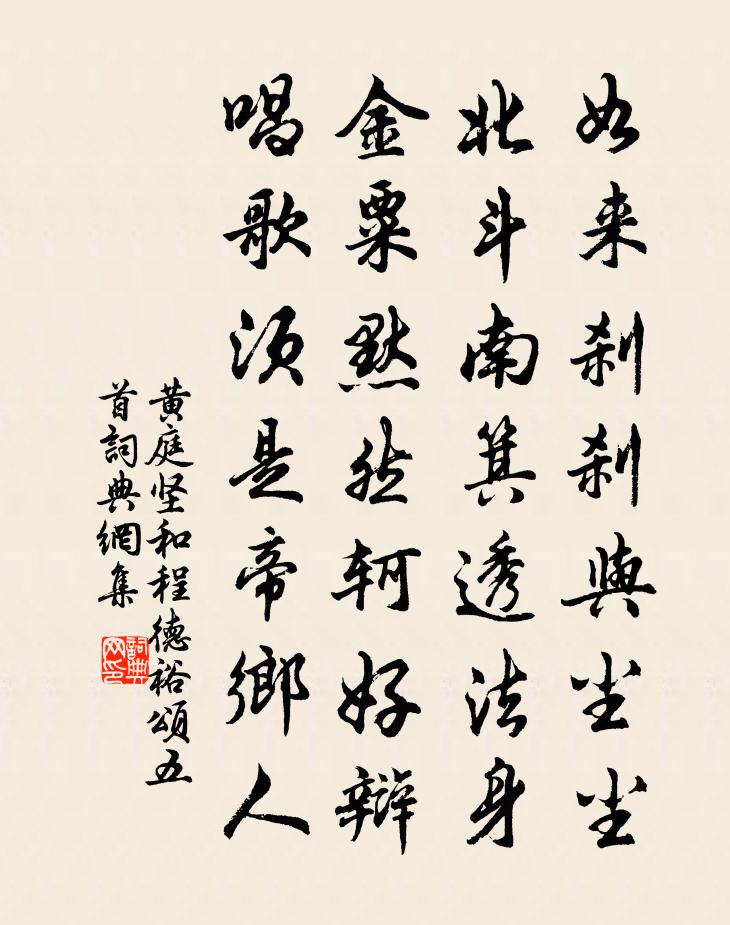 如来刹刹與尘尘
北斗南箕透法身
金粟默然轲好辯
唱歌須是帝鄉人
黄庭坚和程德裕頌五
首詞典網集
詞典网印